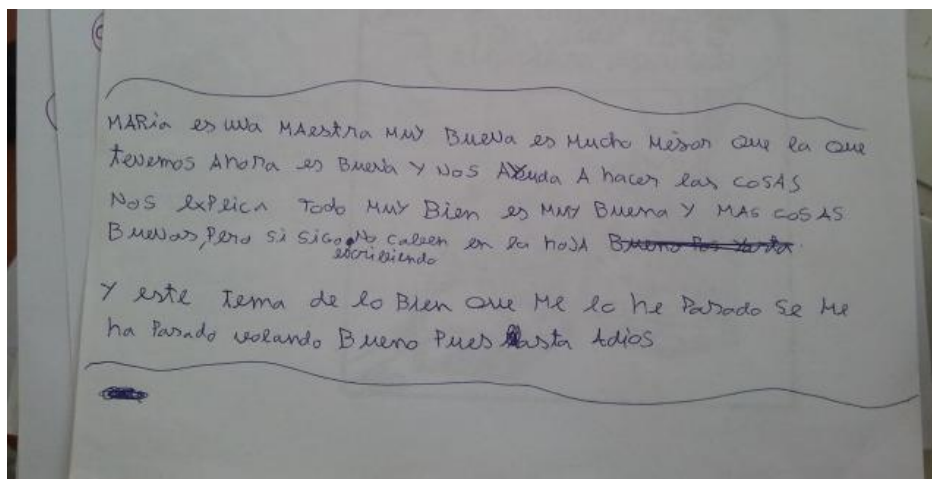 MARia es una MAestra MUY BUENa es Mucho Mejor QUe la QUe
tenemos AhoRa es BUEna Y NoS AYuda A hacer las COSAS
NoS explica Todo MUY Bien es MUY BUEna Y MAS COSAS
BUEnas, Pero si siGo escribiendo No caben en la hoJA Bueno Pos hasta
Y este Tema de lo Bien QUe Me lo he Pasado Se Me
ha Pasado volando BUeno PUes hasta AdioS